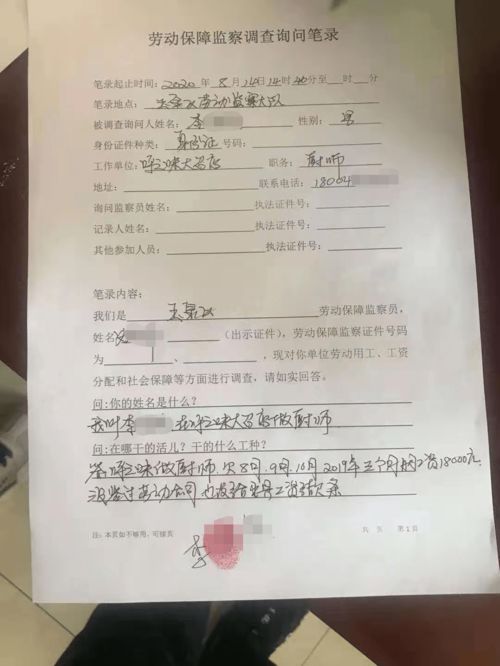 劳动保障监察调查询问笔录
笔录起止时间：2020年8月14日14时40分至__时__分
笔录地点：劳动监察大队
被调查询问人姓名：李 性别：男
身份证种类：身份证 号码：
工作单位：味大酒店 职务：厨师
地址： 联系电话：18004
询问监察员姓名： 执法证件号：
记录人姓名： 执法证件号：
其他参加人员： 执法证件号：
笔录内容：
我们是 劳动保障监察员，
姓名 （出示证件），劳动保障监察证件号码
为 、 ，现对你单位劳动用工、工资
分配和社会保障等方面进行调查，请如实回答。
问:你的姓名是什么？
我叫李 在 味大酒店做厨师
问:在哪干的活儿？干的什么工种？
答: 味做厨师 欠8月.9月.10月2019年三个月的工资18000元.
没签过劳动合同 也没给出具工资欠条
注：本页如不够用，可续页 共 页 第1页
李